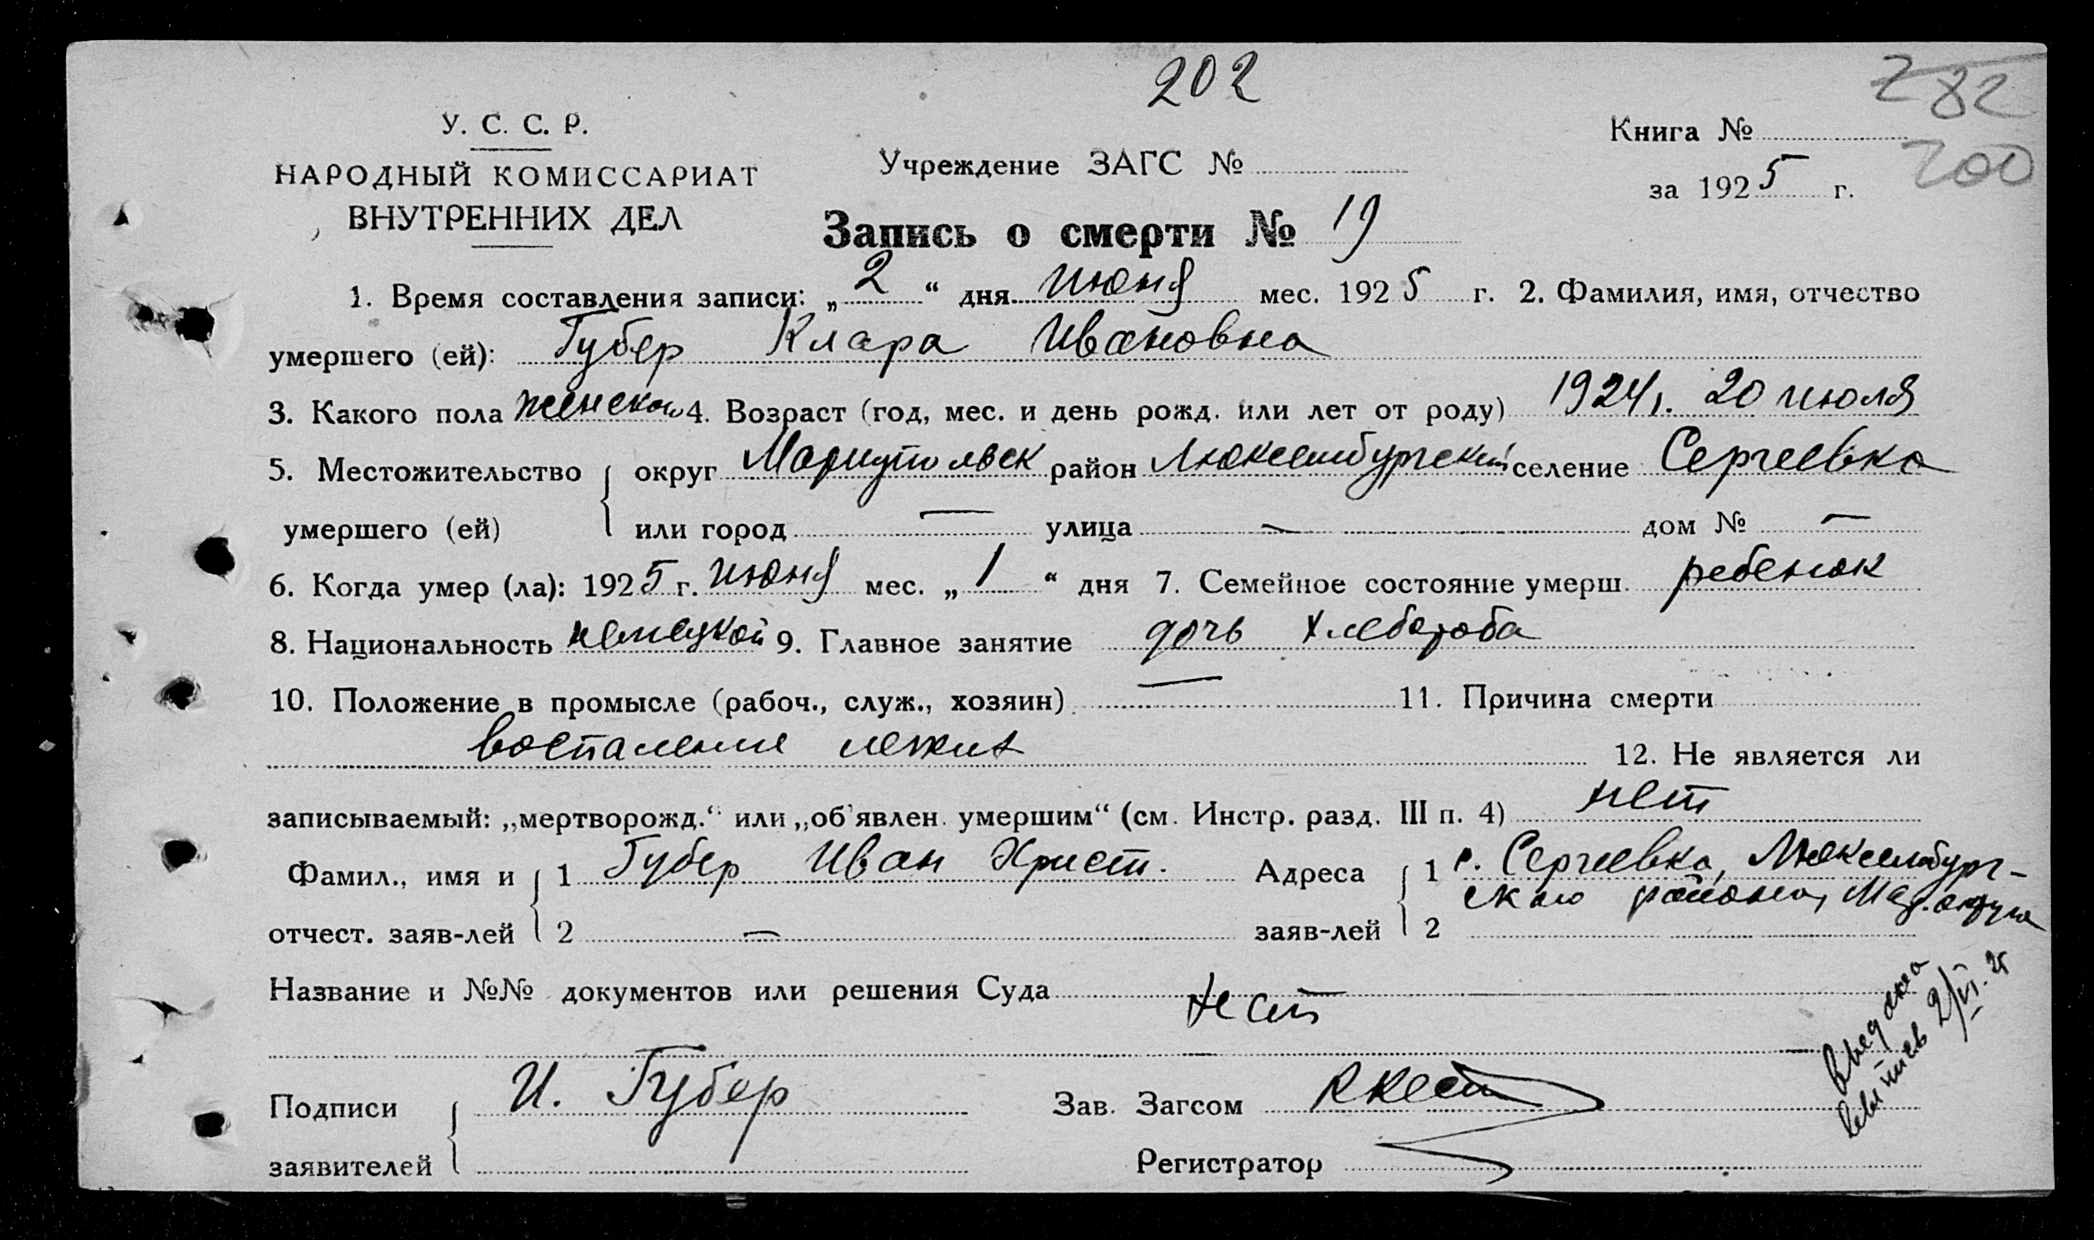 202
282
200
У. С. С. Р.
НАРОДНЫЙ КОМИССАРИАТ
ВНУТРЕННИХ ДЕЛ
Учреждение ЗАГС №
Книга №
за 1925 г.
Запись о смерти № 19
1. Время составления записи: „2“ дня июня мес. 1925 г. 2. Фамилия, имя, отчество
умершего (ей): Губер Клара Ивановна
3. Какого пола женского 4. Возраст (год, мес. и день рожд. или лет от роду) 1924 г. 20 июля
5. Местожительство округ Мариупольск район Люксембургский селение Сергеевка
умершего (ей) или город — улица — дом № —
6. Когда умер (ла): 1925 г. июня мес. „1“ дня 7. Семейное состояние умерш. ребенок
8. Национальность немецкой 9. Главное занятие дочь хлебороба
10. Положение в промысле (рабоч., служ., хозяин) — 11. Причина смерти
воспаление легких 12. Не является ли
записываемый: „мертворожд.“ или „об'явлен умершим“ (см. Инстр. разд. III п. 4) нет
Фамил., имя и 1 Губер Иван Христ. Адреса 1 с. Сергеевка, Люксембург-
ского района, Мар. округа
отчест. заяв-лей 2 — заяв-лей 2
Название и №№ документов или решения Суда нет
Подписи И. Губер Зав. Загсом
заявителей Регистратор
2/VI. 25